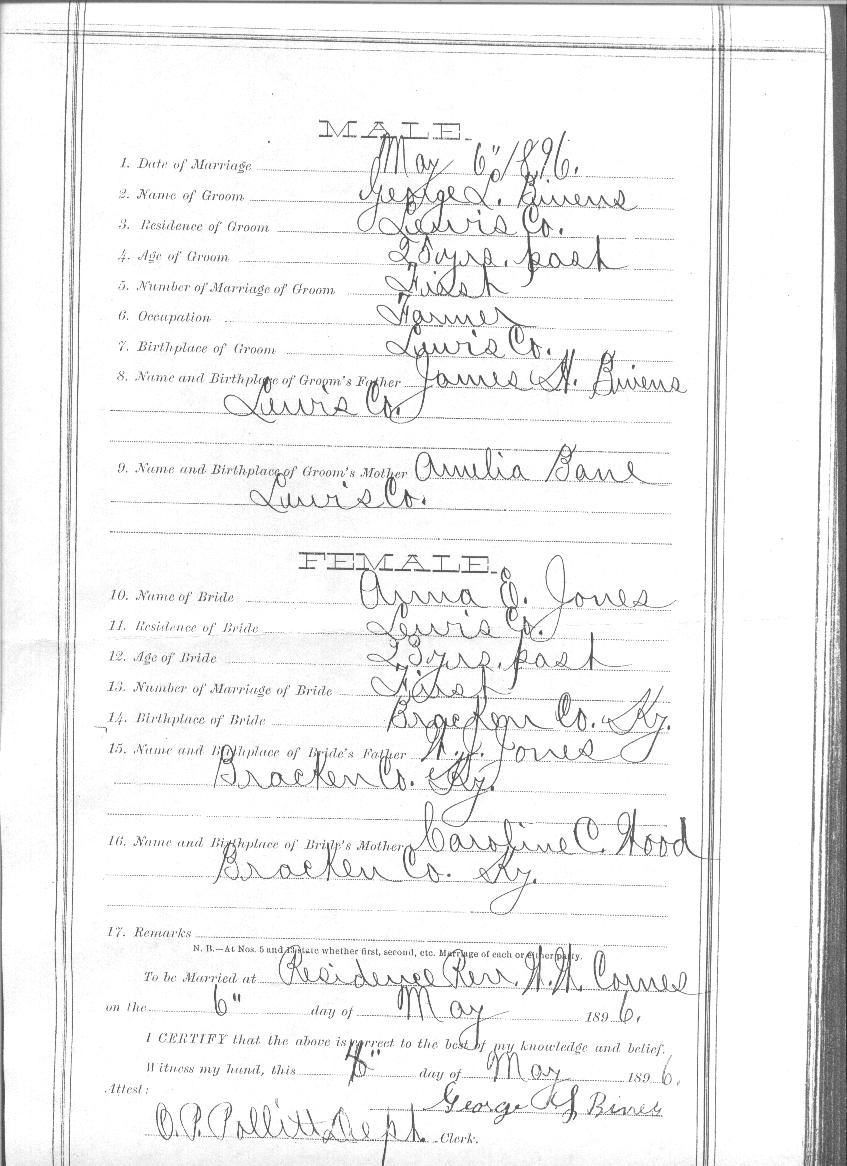 MALE.
1. Date of Marriage May 6" 1896.
2. Name of Groom George L. Bivens
3. Residence of Groom Lewis Co.
4. Age of Groom 25 yrs. past
5. Number of Marriage of Groom First
6. Occupation Farmer
7. Birthplace of Groom Lewis Co.
8. Name and Birthplace of Groom's Father James H. Bivens
Lewis Co.
9. Name and Birthplace of Groom's Mother Amelia Bane
Lewis Co.
FEMALE.
10. Name of Bride Anna E. Jones
11. Residence of Bride Lewis Co.
12. Age of Bride 23 yrs. past
13. Number of Marriage of Bride First
14. Birthplace of Bride Bracken Co. Ky.
15. Name and Birthplace of Bride's Father Jones
Bracken Co. Ky.
16. Name and Birthplace of Bride's Mother Caroline C. Hood
Bracken Co. Ky.
17. Remarks
N. B.—At Nos. 5 and 13 state whether first, second, etc. Marriage of each or either party.
To be Married at Residence Rev. H. H. Cornes
on the 6" day of May 1896.
I CERTIFY that the above is correct to the best of my knowledge and belief.
Witness my hand, this day of May 1896.
Attest: George L Bivens
O. P. Pollitt Dept. Clerk.